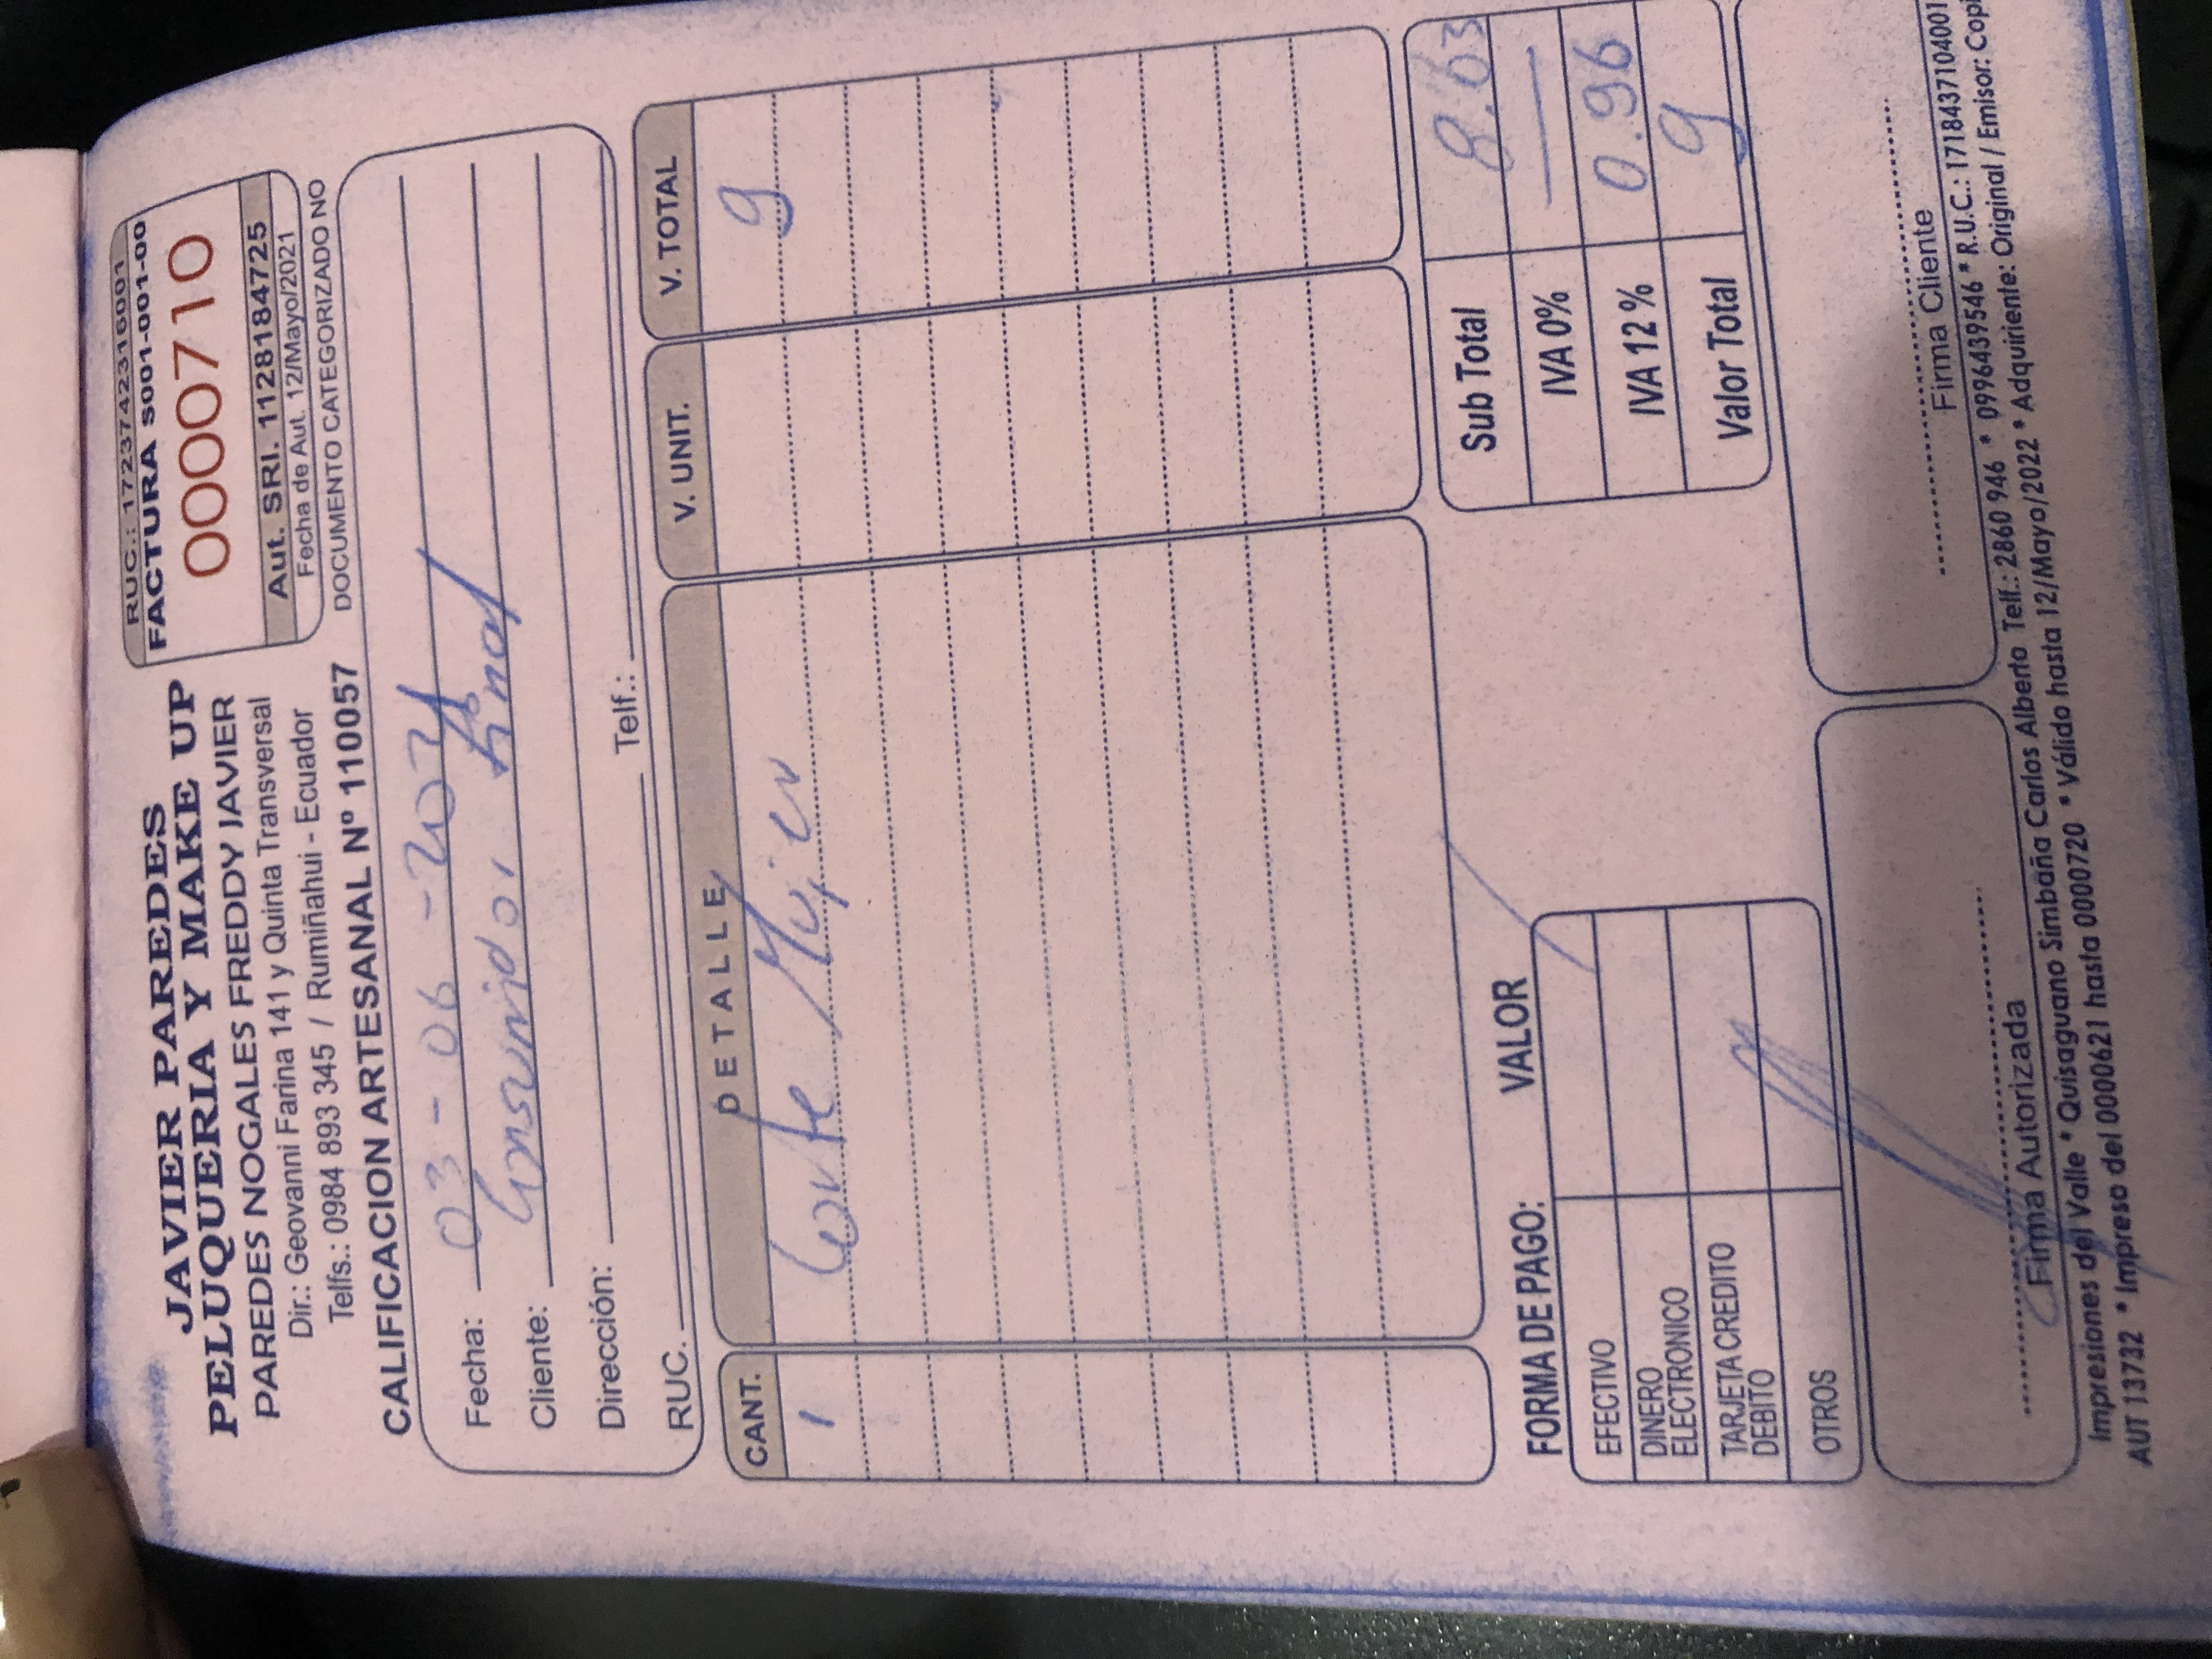 JAVIER PAREDES
PELUQUERIA Y MAKE UP
PAREDES NOGALES FREDDY JAVIER
Dir.: Geovanni Farina 141 y Quinta Transversal
Telfs.: 0984 893 345 / Rumiñahui - Ecuador
CALIFICACION ARTESANAL Nº 110057
RUC.: 1723742316001
FACTURA S001-001-00
0000710
Aut. SRI. 1128184725
Fecha de Aut. 12/Mayo/2021
DOCUMENTO CATEGORIZADO NO
Fecha: 03-06-2021
Cliente: Consumidor Final
Dirección:
RUC. Telf.:
CANT. DETALLE V. UNIT. V. TOTAL
1 Corte Mujer 9
Sub Total 8.03
IVA 0% —
IVA 12 % 0.96
Valor Total 9
FORMA DE PAGO: VALOR
EFECTIVO
DINERO ELECTRONICO
TARJETA CREDITO DEBITO
OTROS
Firma Autorizada
Firma Cliente
Impresiones del Valle * Quisaguano Simbaña Carlos Alberto Telf.: 2860 946 * 0996439546 * R.U.C.: 1718437104001
AUT 13732 * Impreso del 0000621 hasta 0000720 * Válido hasta 12/Mayo/2022 * Adquiriente: Original / Emisor: Copi